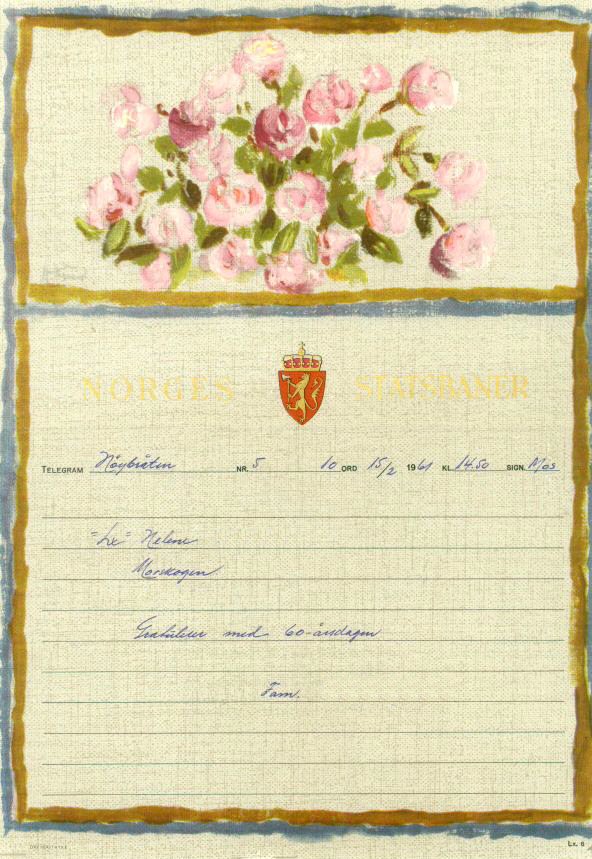 NORGES STATSBANER
TELEGRAM Høybråten NR. 5 10 ORD 15/2 1961 KL. 14.50 SIGN. Mos
"Lx" Helene
Morskogen
Gratulerer med 60-årsdagen
Fam.
Lx. 6